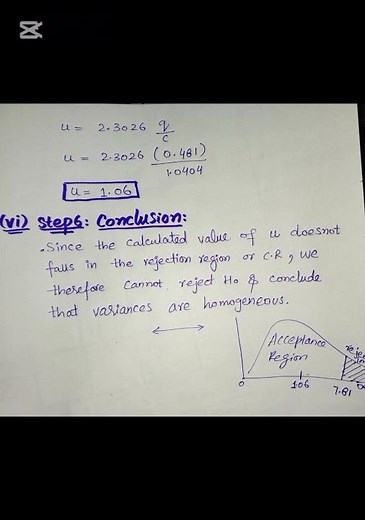 u = 2.3026 q/c
u = 2.3026 (0.481)/1.0404
u = 1.06
(vi) Step6: Conclusion:
. Since the calculated value of u doesnot
falls in the rejection region or C.R, we
therefore cannot reject Ho & conclude
that variances are homogeneous.
Acceptance
Region
0
1.06
7.81